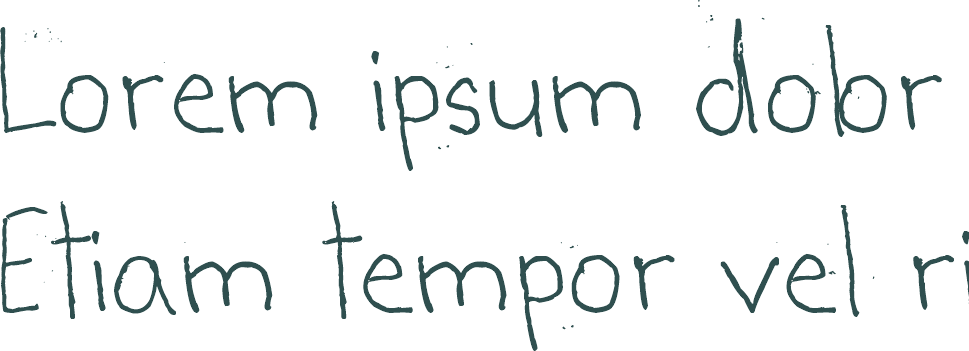 Lorem ipsum dolor
Etiam tempor vel ri